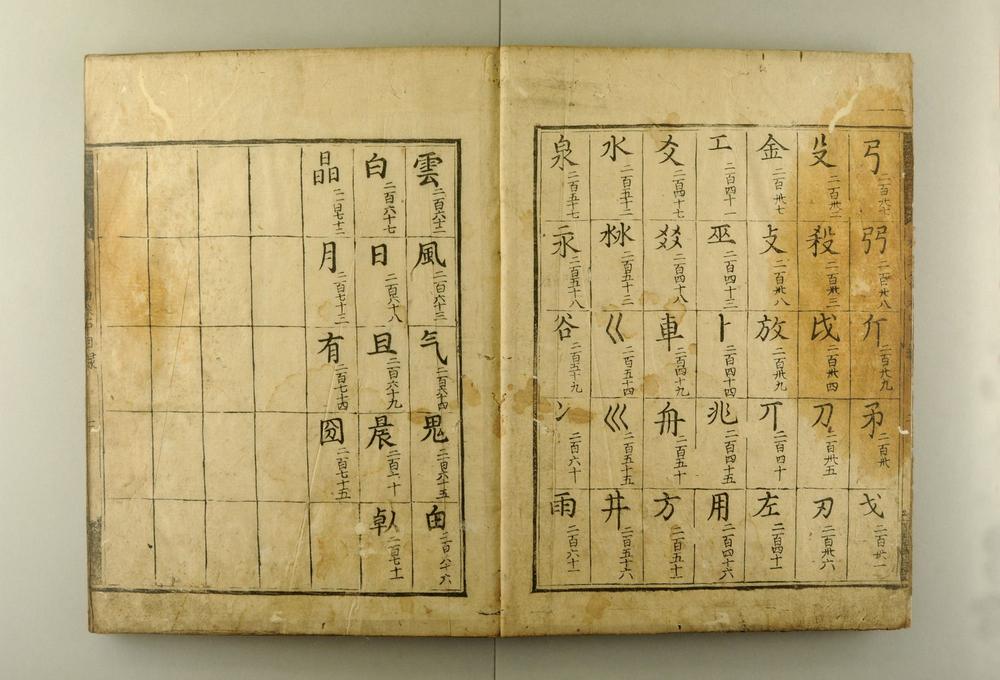 弓 二百廿七
弜 二百廿八
斤 二百廿九
矛 二百卅
戈 二百卅一
殳 二百卅二
殺 二百卅三
戉 二百卅四
刀 二百卅五
刃 二百卅六
金 二百卅七
攴 二百卅八
放 二百卅九
丌 二百四十
左 二百四十一
工 二百四十二
巫 二百四十三
卜 二百四十四
兆 二百四十五
用 二百四十六
爻 二百四十七
㸚 二百四十八
車 二百四十九
舟 二百五十
方 二百五十一
水 二百五十二
沝 二百五十三
巜 二百五十四
巛 二百五十五
井 二百五十六
泉 二百五十七
永 二百五十八
谷 二百五十九
冫 二百六十
雨 二百六十一
雲 二百六十二
風 二百六十三
气 二百六十四
鬼 二百六十五
甶 二百六十六
白 二百六十七
日 二百六十八
旦 二百六十九
晨 二百七十
倝 二百七十一
晶 二百七十二
月 二百七十三
有 二百七十四
囧 二百七十五